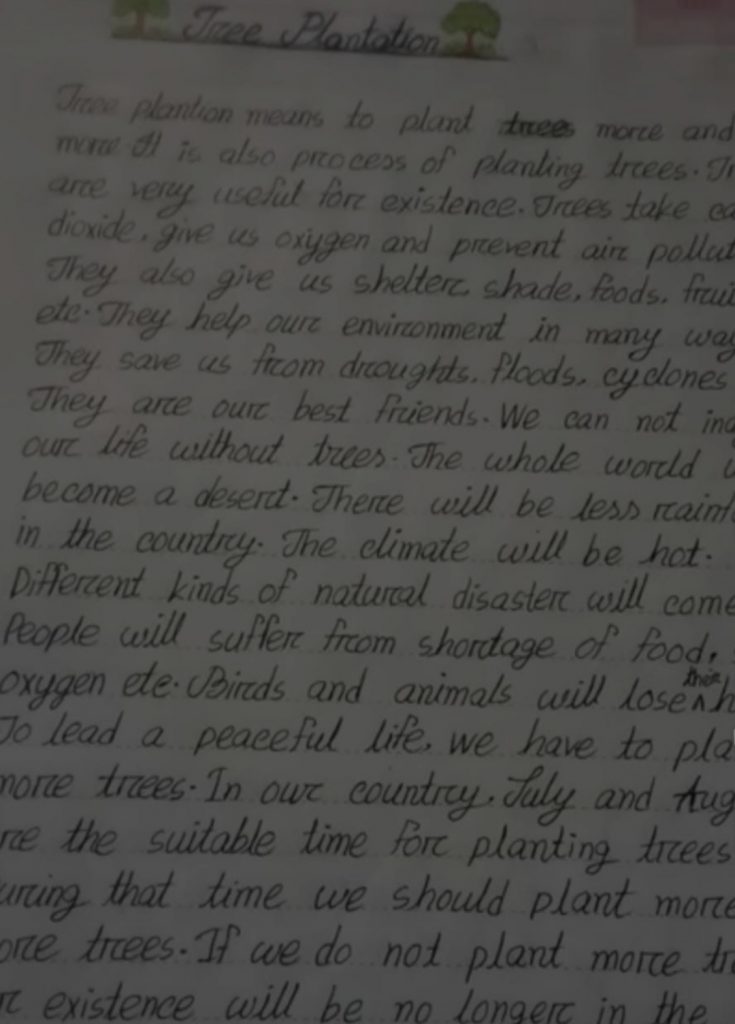 Tree Plantation
Tree plantion means to plant trees more and
more It is also process of planting trees.
are very useful for existence. Trees take
dioxide, give us oxygen and prevent air
They also give us shelter, shade, foods,
etc. They help our environment in many
They save us from droughts, floods, cyclones
They are our best friends. We can not
our life without trees. The whole world
become a desert. There will be less
in the country. The climate will be hot.
Different kinds of natural disaster will come
People will suffer from shortage of food,
oxygen etc. Birds and animals will lose their
To lead a peaceful life, we have to
more trees. In our country, July and
the suitable time for planting trees
that time we should plant more
trees. If we do not plant more
existence will be no longer in the